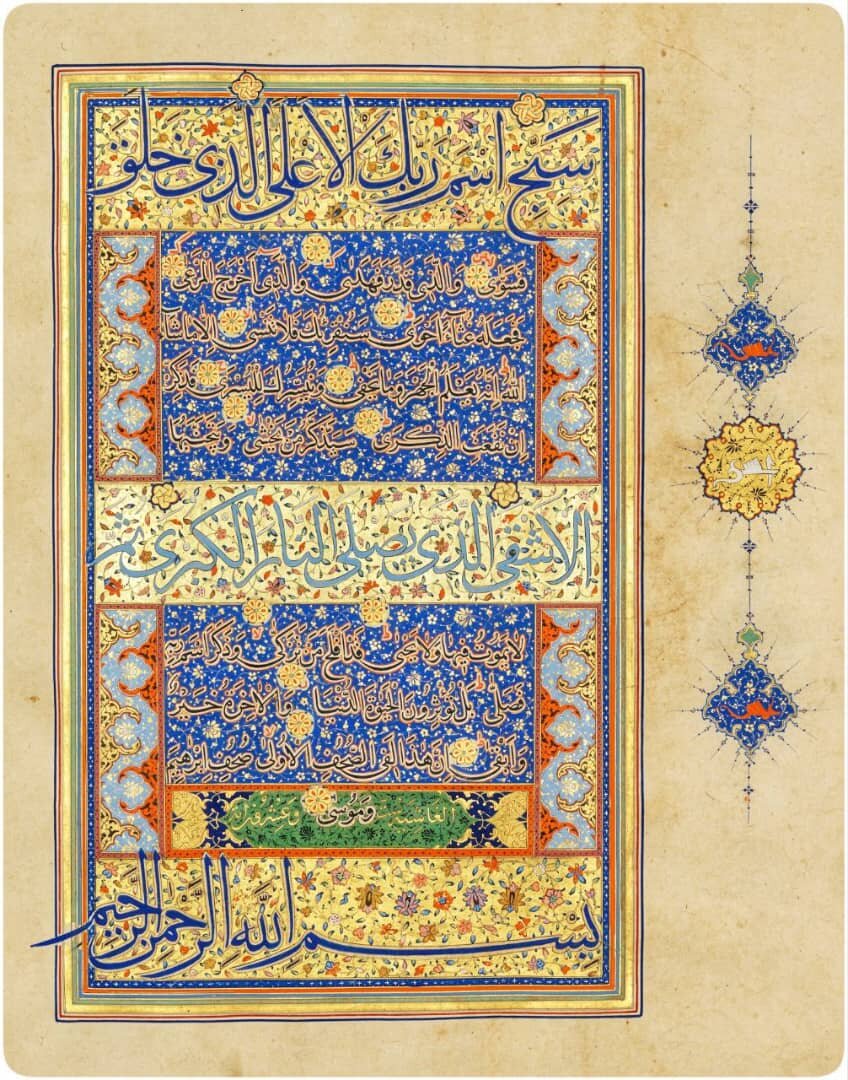 سبح اسم ربك الاعلى الذى خلق
فسوى والذى قدر فهدى والذى اخرج المرعى
فجعله غثاء احوى سنقرئك فلا تنسى الا ما شاء
الله انه يعلم الجهر وما يخفى ونيسرك لليسرى فذكر
ان نفعت الذكرى سيذكر من يخشى ويتجنبها
الاشقى الذى يصلى النار الكبرى ثم
لا يموت فيها ولا يحيى قد افلح من تزكى وذكر اسم ربه
فصلى بل تؤثرون الحيوة الدنيا والاخرة خير
وابقى ان هذا لفى الصحف الاولى صحف ابرهيم
الغاشية وموسى
بسم الله الرحمن الرحيم